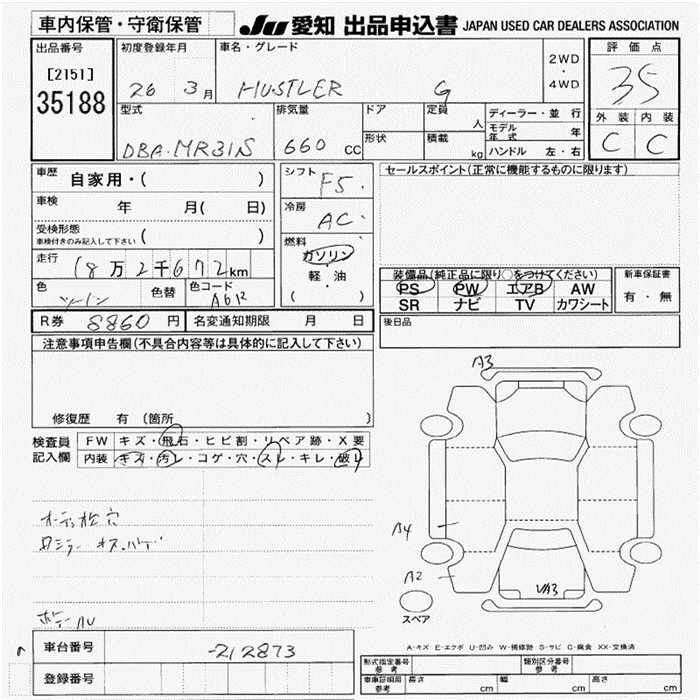 車内保管・守衛保管
JU 愛知 出品申込書 JAPAN USED CAR DEALERS ASSOCIATION
出品番号 初度登録年月 車名・グレード 2WD・4WD 評価点
[2151] 26 3月 HUSTLER G 35
35188
型式 排気量 ドア 定員 人 ディーラー・並行 外装 内装
DBA-MR31S 660 CC 形状 積載 kg モデル年式 年 C C
ハンドル 左・右
車歴 自家用・( ) シフト F5 セールスポイント(正常に機能するものに限ります)
車検 年 月( 日) 冷房 AC
受検形態 ( )
車検付きのみ記入して下さい
走行 18万2千672km 燃料 ガソリン・軽・油 ( )
色 色替 色コード
装備品(純正品に限り○をつけてください) 新車保証書
PS PW エアB AW 有・無
SR ナビ TV カワシート
R券 8860円 名変通知期限 月 日 後日品
注意事項申告欄(不具合内容等は具体的に記入して下さい)
修復歴 有 (箇所 )
検査員記入欄 FW キズ・飛石・ヒビ割・リペア跡・X要
内装 キズ・汚レ・コゲ・穴・スレ・キレ・破レ
A3
A4
A2
VA3
スペア
A-キズ E-エクボ U-凹み W-補修跡 S-サビ C-腐食 XX-交換済
車台番号 -212873
登録番号
形式指定番号 参考 類別区分番号 参考
車庫証明用 参考 長さ cm 幅 cm 高さ cm